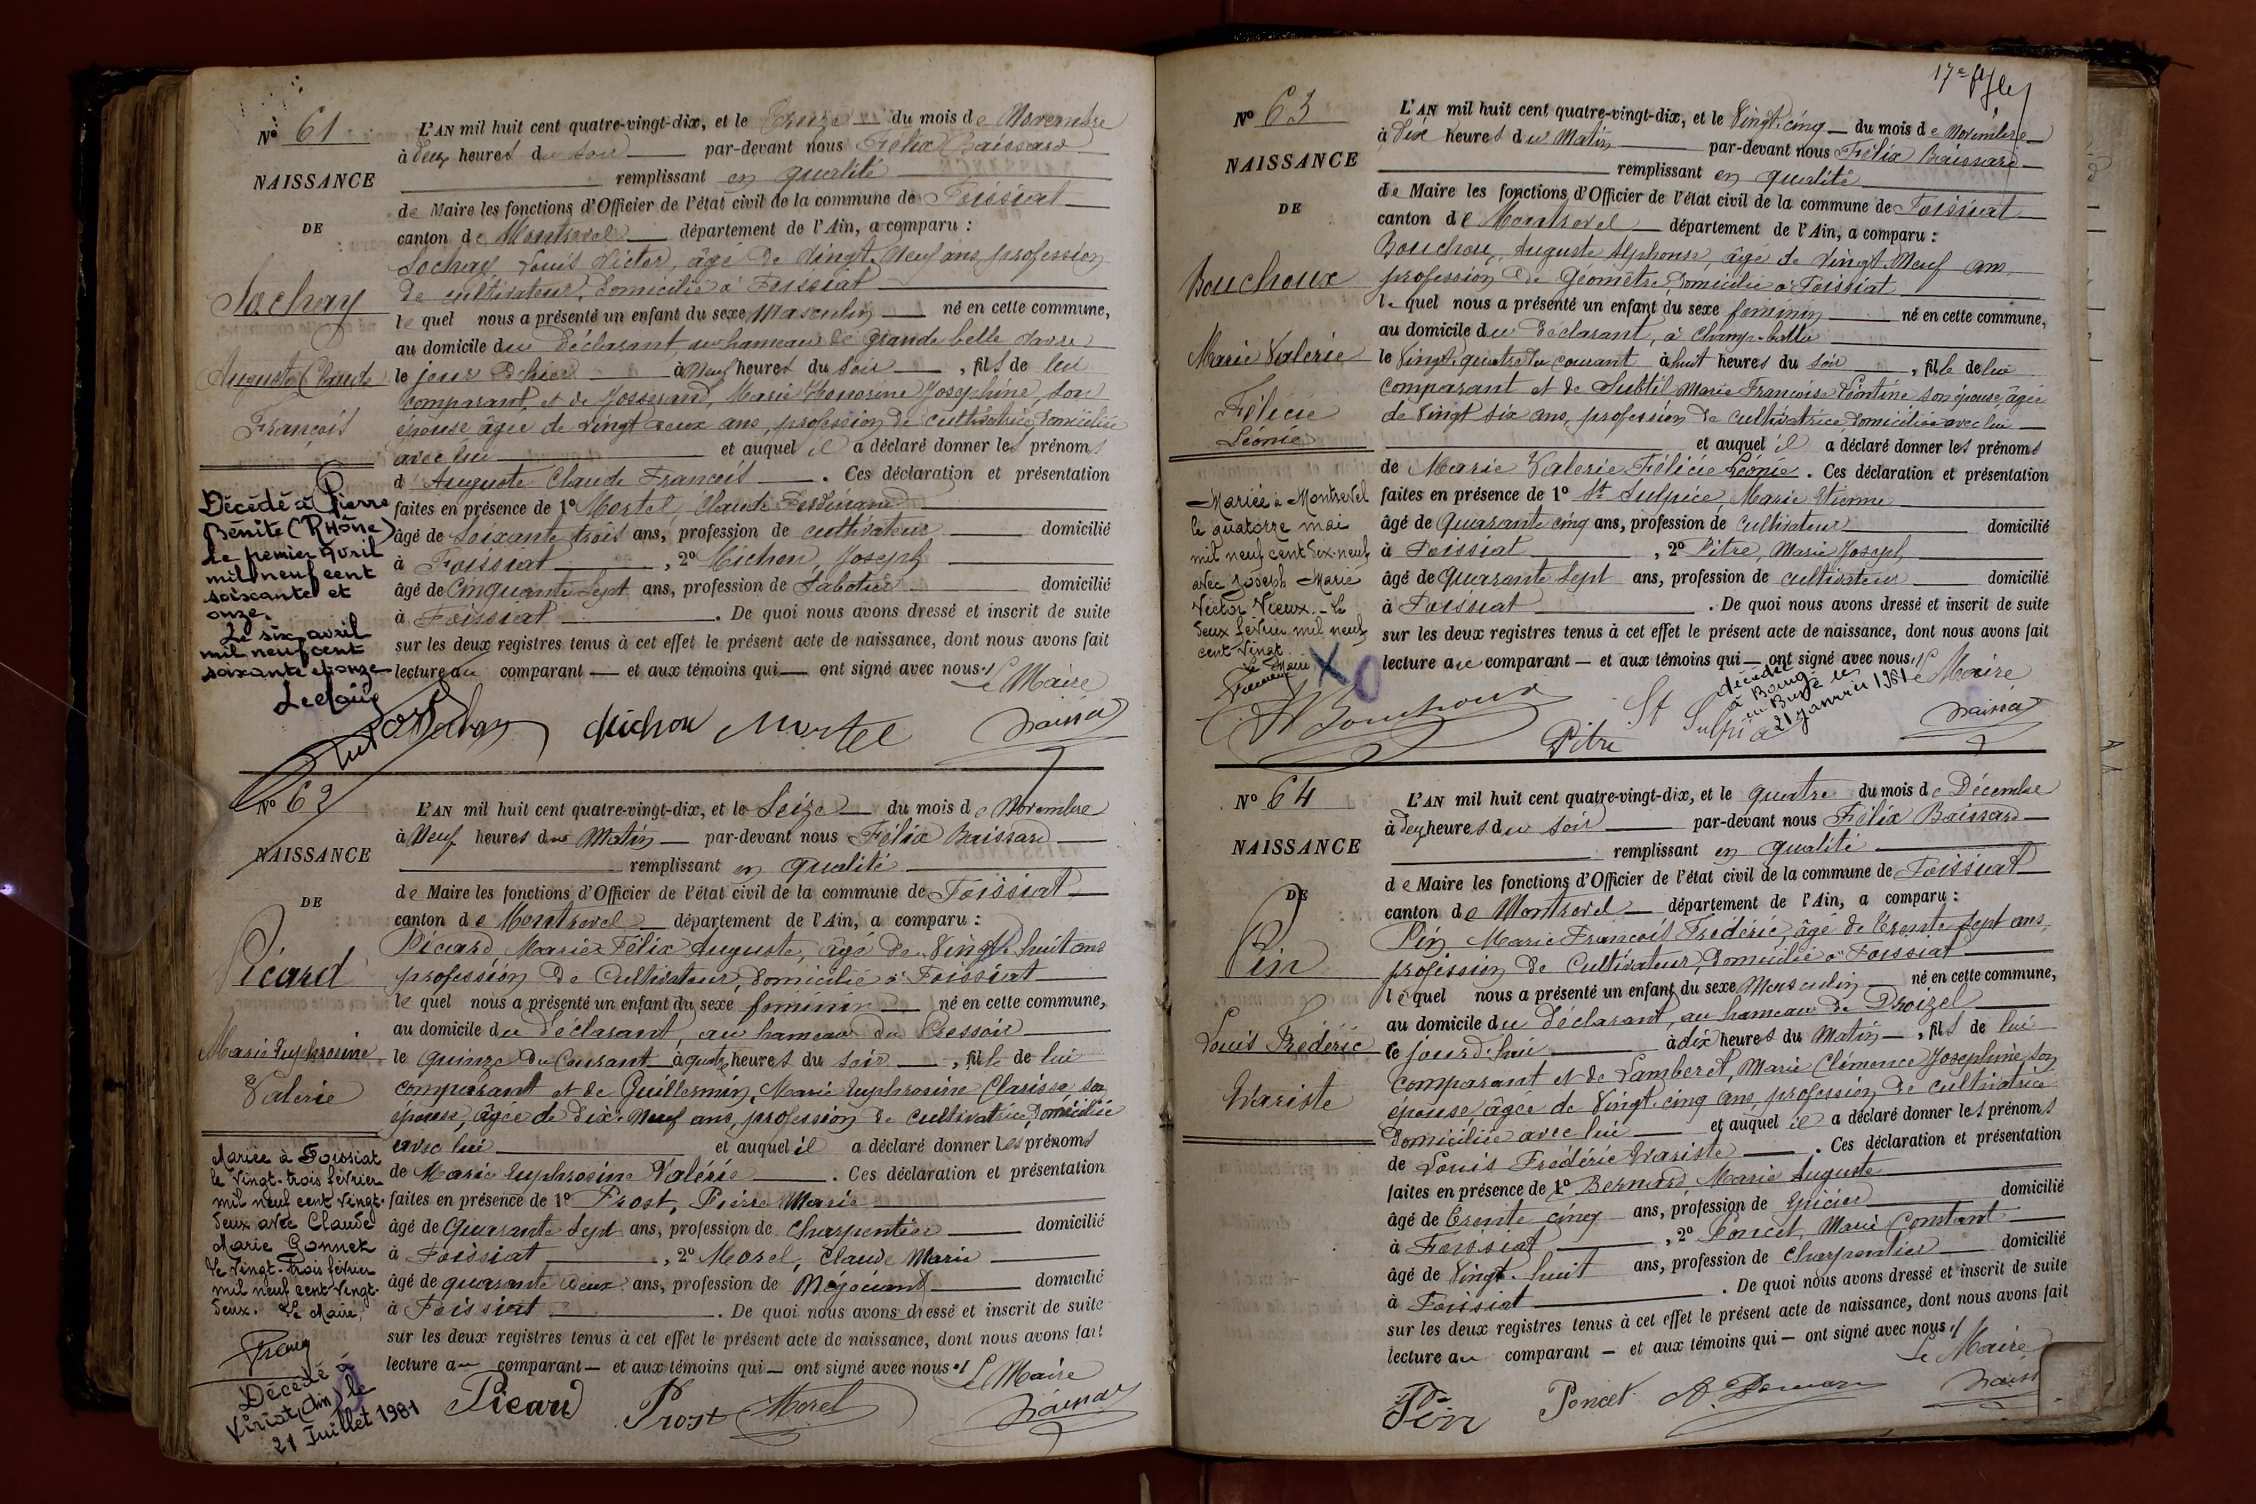 Nº 61
NAISSANCE
DE
Sochay
Auguste Claude
François
Décédé à Pierre
Bénite (Rhône)
le premier Avril
mil neuf cent
soixante et
onze.
Le six avril
mil neuf cent
soixante et onze
L'AN mil huit cent quatre-vingt-dix, et le treize du mois de Novembre
à deux heures du soir par-devant nous Félix Baissard
remplissant en qualité
de Maire les fonctions d'Officier de l'état civil de la commune de Foissiat
canton de Montrevel département de l'Ain, a comparu :
Sochay Louis Victor, âgé de Vingt-Neuf ans, profession
de cultivateur, domicilié à Foissiat
lequel nous a présenté un enfant du sexe Masculin né en cette commune,
au domicile du déclarant au hameau de grande belle
le jour d'hier à Neuf heures du soir, fils de lui
comparant, et de Josserand, Marie Honorine Joséphine, son
épouse âgée de vingt deux ans, profession de cultivatrice, domiciliée
avec lui et auquel il a déclaré donner les prénoms
d'Auguste Claude François. Ces déclaration et présentation
faites en présence de 1º Mortel, Claude Ferdinand
âgé de soixante trois ans, profession de cultivateur domicilié
à Foissiat, 2º Michon, Joseph
âgé de Cinquante Sept ans, profession de Sabotier domicilié
à Foissiat. De quoi nous avons dressé et inscrit de suite
sur les deux registres tenus à cet effet le présent acte de naissance, dont nous avons fait
lecture au comparant — et aux témoins qui — ont signé avec nous./.
Le Maire
Michon Mortel Baissard
Nº 62
NAISSANCE
DE
Picard
Marie Euphrosine
Valérie
Mariée à Foissiat
le Vingt-trois février
mil neuf cent vingt-
deux avec Claude
Marie Gonnet
Le Vingt-trois février
mil neuf cent vingt-
deux. Le Maire,
Décédé à
Viriat (Ain) le
21 Juillet 1981
L'AN mil huit cent quatre-vingt-dix, et le Seize du mois de Novembre
à Neuf heures du Matin par-devant nous Félix Baissard
remplissant en qualité
de Maire les fonctions d'Officier de l'état civil de la commune de Foissiat
canton de Montrevel département de l'Ain, a comparu :
Picard Marie Félix Auguste, âgé de Vingt-huit ans
profession de Cultivateur, domicilié à Foissiat
lequel nous a présenté un enfant du sexe féminin né en cette commune,
au domicile du déclarant, au hameau du Pressoir
le quinze du Courant à quatre heures du soir, fille de lui
comparant et de Guillermin, Marie Euphrosine Clarisse son
épouse, âgée de Dix-Neuf ans, profession de cultivatrice, domiciliée
avec lui et auquel il a déclaré donner les prénoms
de Marie Euphrosine Valérie. Ces déclaration et présentation
faites en présence de 1º Prost, Pierre Marie
âgé de Quarante Sept ans, profession de Charpentier domicilié
à Foissiat, 2º Morel, Claude Marie
âgé de quarante deux ans, profession de Négociant domicilié
à Foissiat. De quoi nous avons dressé et inscrit de suite
sur les deux registres tenus à cet effet le présent acte de naissance, dont nous avons fait
lecture au comparant — et aux témoins qui — ont signé avec nous./.
Le Maire
Picard Prost Morel Baissard
17e
Nº 63
NAISSANCE
DE
Bouchoux
Marie Valérie
Félicie
Léonie
Mariée à Montrevel
le quatorze mai
mil neuf cent dix-neuf
avec Joseph Marie
Victor Vieux. - Le
deux février mil neuf
cent vingt.
Le Maire
L'AN mil huit cent quatre-vingt-dix, et le Vingt-cinq du mois de Novembre
à Dix heures du Matin par-devant nous Félix Baissard
remplissant en qualité
de Maire les fonctions d'Officier de l'état civil de la commune de Foissiat
canton de Montrevel département de l'Ain, a comparu :
Bouchoux, Auguste Alphonse, âgé de Vingt-Neuf ans,
profession de Géomètre, domicilié à Foissiat
lequel nous a présenté un enfant du sexe féminin né en cette commune,
au domicile du déclarant, à Champ-ballu
le Vingt-quatre du courant à huit heures du soir, fille de lui
comparant et de Subtil Marie Françoise Léontine son épouse, âgée
de Vingt six ans, profession de cultivatrice domiciliée avec lui
et auquel il a déclaré donner les prénoms
de Marie Valérie Félicie Léonie. Ces déclaration et présentation
faites en présence de 1º St Sulpice, Marie Etienne
âgé de Quarante cinq ans, profession de Cultivateur domicilié
à Foissiat, 2º Pitre, Marie Joseph
âgé de Quarante Sept ans, profession de cultivateur domicilié
à Foissiat. De quoi nous avons dressé et inscrit de suite
sur les deux registres tenus à cet effet le présent acte de naissance, dont nous avons fait
lecture au comparant — et aux témoins qui — ont signé avec nous./.
Le Maire
décédée
à Bourg
en Bresse le
21 janvier 1981
Bouchoux Pitre St Sulpice Baissard
Nº 64
NAISSANCE
DE
Pin
Louis Frédéric
Evariste
L'AN mil huit cent quatre-vingt-dix, et le quatre du mois de Décembre
à deux heures du soir par-devant nous Félix Baissard
remplissant en qualité
de Maire les fonctions d'Officier de l'état civil de la commune de Foissiat
canton de Montrevel département de l'Ain, a comparu :
Pin, Marie François Frédéric, âgé de trente sept ans,
profession de Cultivateur, domicilié à Foissiat
lequel nous a présenté un enfant du sexe Masculin né en cette commune,
au domicile du déclarant, au hameau de Droizel
le jour d'hui à dix heures du Matin, fils de lui
comparant et de Lamberet, Marie Clémence Joséphine, son
épouse, âgée de Vingt-cinq ans, profession de cultivatrice
domiciliée avec lui et auquel il a déclaré donner les prénoms
de Louis Frédéric Evariste. Ces déclaration et présentation
faites en présence de 1º Bernard Marie Auguste
âgé de trente cinq ans, profession de épicier domicilié
à Foissiat, 2º Poncet, Marie Constant
âgé de Vingt-huit ans, profession de Charpentier domicilié
à Foissiat. De quoi nous avons dressé et inscrit de suite
sur les deux registres tenus à cet effet le présent acte de naissance, dont nous avons fait
lecture au comparant — et aux témoins qui — ont signé avec nous./.
Le Maire
Pin Poncet A. Bernard